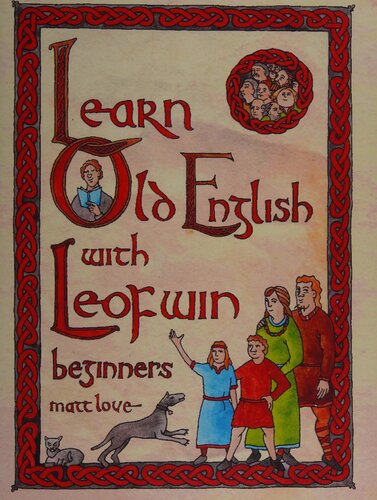 Learn
Old English
with
Leofwin
beginners
matt love